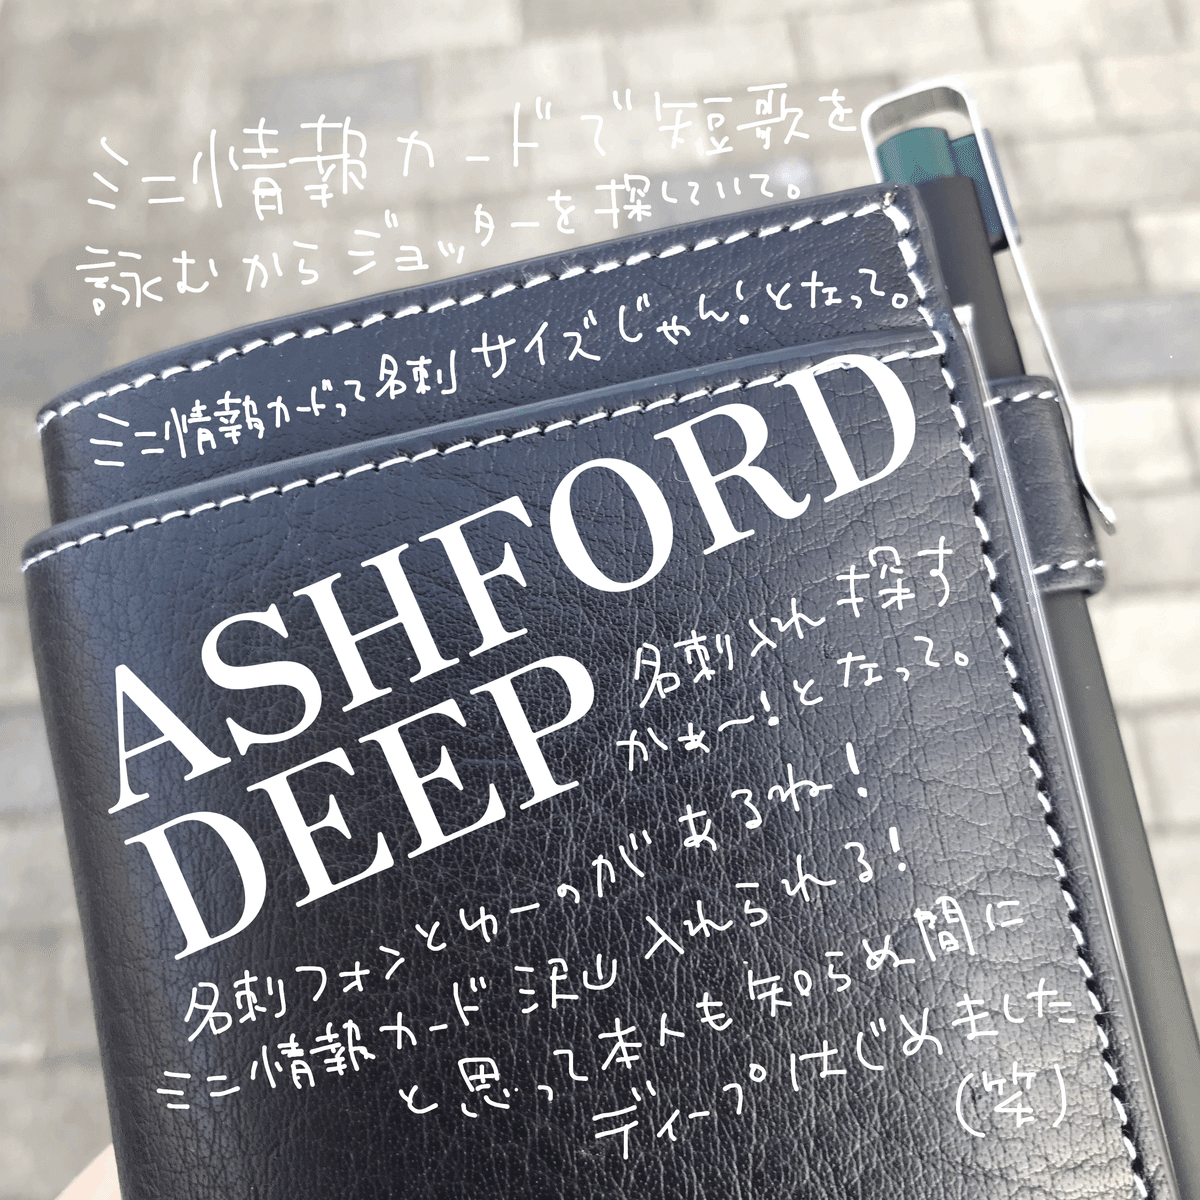 ミニ情報カードで短歌を
詠むからジョッターを探していて。
ミニ情報カードって名刺サイズじゃん！となって。
ASHFORD
DEEP
名刺入れ探す
かぁ〜！となって。
名刺フォンとゆーのがあるね！
ミニ情報カード沢山入れられる！
と思って本人も知らぬ間に
ディープはじめました
(笑)